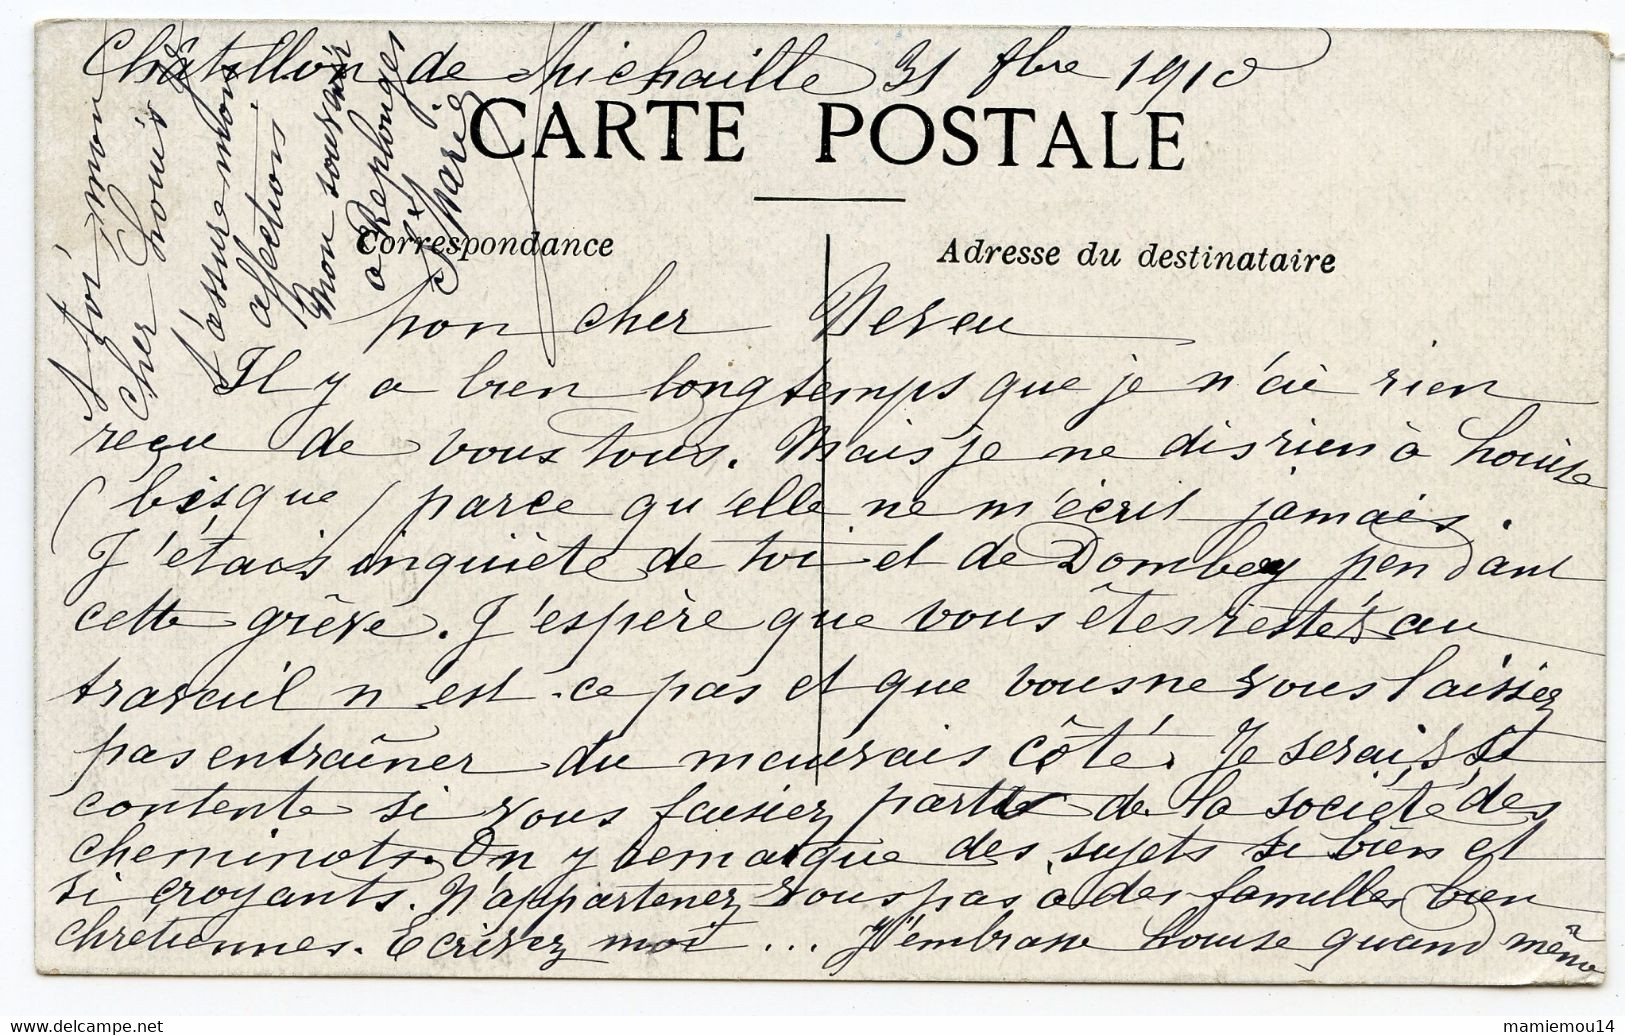 Châtillon de Michaille 31 8bre 1910
CARTE POSTALE
Correspondance
Adresse du destinataire
Mon cher Neveu
Il y a bien longtemps que je n'ai rien
reçu de vous tous. Mais je ne dis rien à Louise
(bisque) parce qu'elle ne m'écrit jamais.
J'étais inquiète de toi et de Dombey pendant
cette grève. J'espère que vous êtes restés au
travail n'est-ce pas et que vous ne vous laissiez
pas entraîner du mauvais côté. Je serais si
contente si vous faisiez partie de la société des
cheminots. On y remarque des sujets si bien et
si croyants. N'appartenez vous pas à des familles bien
chrétiennes. Ecrivez moi ... J'embrasse Louise quand même
A toi mon
cher Louis
J'assure mon
affection
Mon souvenir
à Replonges
Marie
www.delcampe.net
mamiemou14